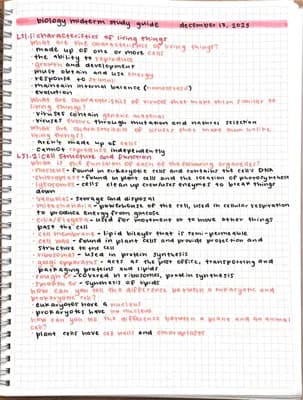 biology midterm study guide december 17, 2023
LS1-1: characteristics of living things
what are the characteristics of living things?
made up of one or more cells
the ability to reproduce
growth and development
must obtain and use energy
response to stimuli
maintain internal balance (homeostasis)
evolution
what are characteristics of viruses that make them similar to
living things?
viruses contain genetic material
viruses evolve through mutation and natural selection
what are characteristics of viruses that make them unlike
living things?
aren't made up of cells
cannot reproduce independently
LS1-2: cell structure and function
what is the function of each of the following organelles?
nucleus - found in eukaryotic cells and contains the cell's DNA
chloroplast - found in plant cells and the location of photosynthesis
lysosomes - cells' clean up crew/uses enzymes to break things
down
vacuoles - storage and disposal
mitochondria - powerhouse of the cell, used in cellular respiration
to produce energy from glucose
cilia/flagella - used for movement or to move other things
past the cell
cell membrane - lipid bilayer that is semi-permeable
cell wall - found in plant cells and provide protection and
structure to the cell
ribosomes - used in protein synthesis
golgi apparatus - acts as the post office, transporting and
packaging proteins and lipids
rough er - covered in ribosomes, protein synthesis
smooth er - synthesis of lipids
how can you tell the difference between a eukaryotic and
prokaryotic cell?
- eukaryotes have a nucleus
- prokaryotes have no nucleus
how can you tell the difference between a plant and an animal
cell?
- plant cells have cell walls and chloroplasts